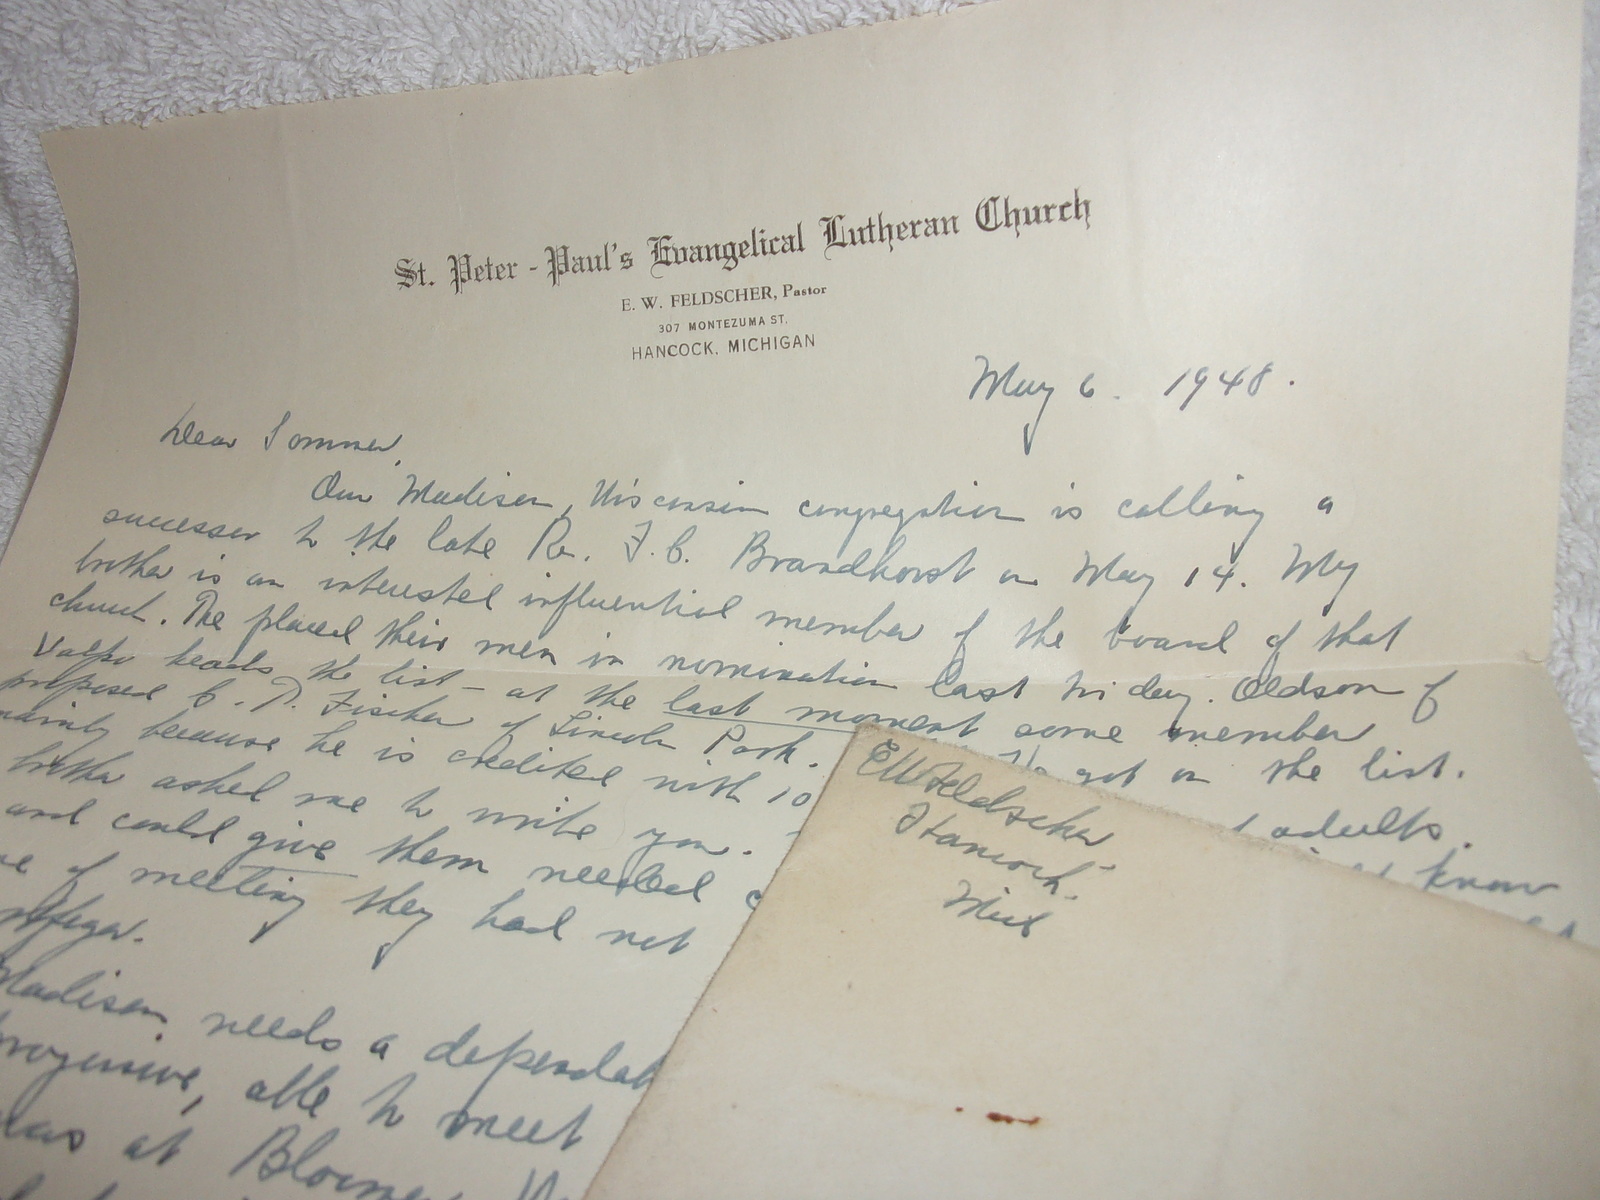 St. Peter - Paul's Evangelical Lutheran Church
E. W. FELDSCHER, Pastor
307 MONTEZUMA ST.
HANCOCK, MICHIGAN
May 6. 1948.
Dear Sommer,
Our Madison, Wisconsin congregation is calling a
successor to the late Rev. F. C. Brandhorst on May 14. My
brother is an interested influential member of the board of that
church. The placed their men in nomination last Friday. Oldson of
Valpo heads the list - at the last moment some member
proposed C. P. Fischer of Lincoln Park. He got on the list.
mainly because he is credited with 10 adults.
brother asked me to write you. know
and could give them needed
of meeting they had not
Madison needs a
progressive, able to meet
was at
EWFeldscher
Hancock
Mich